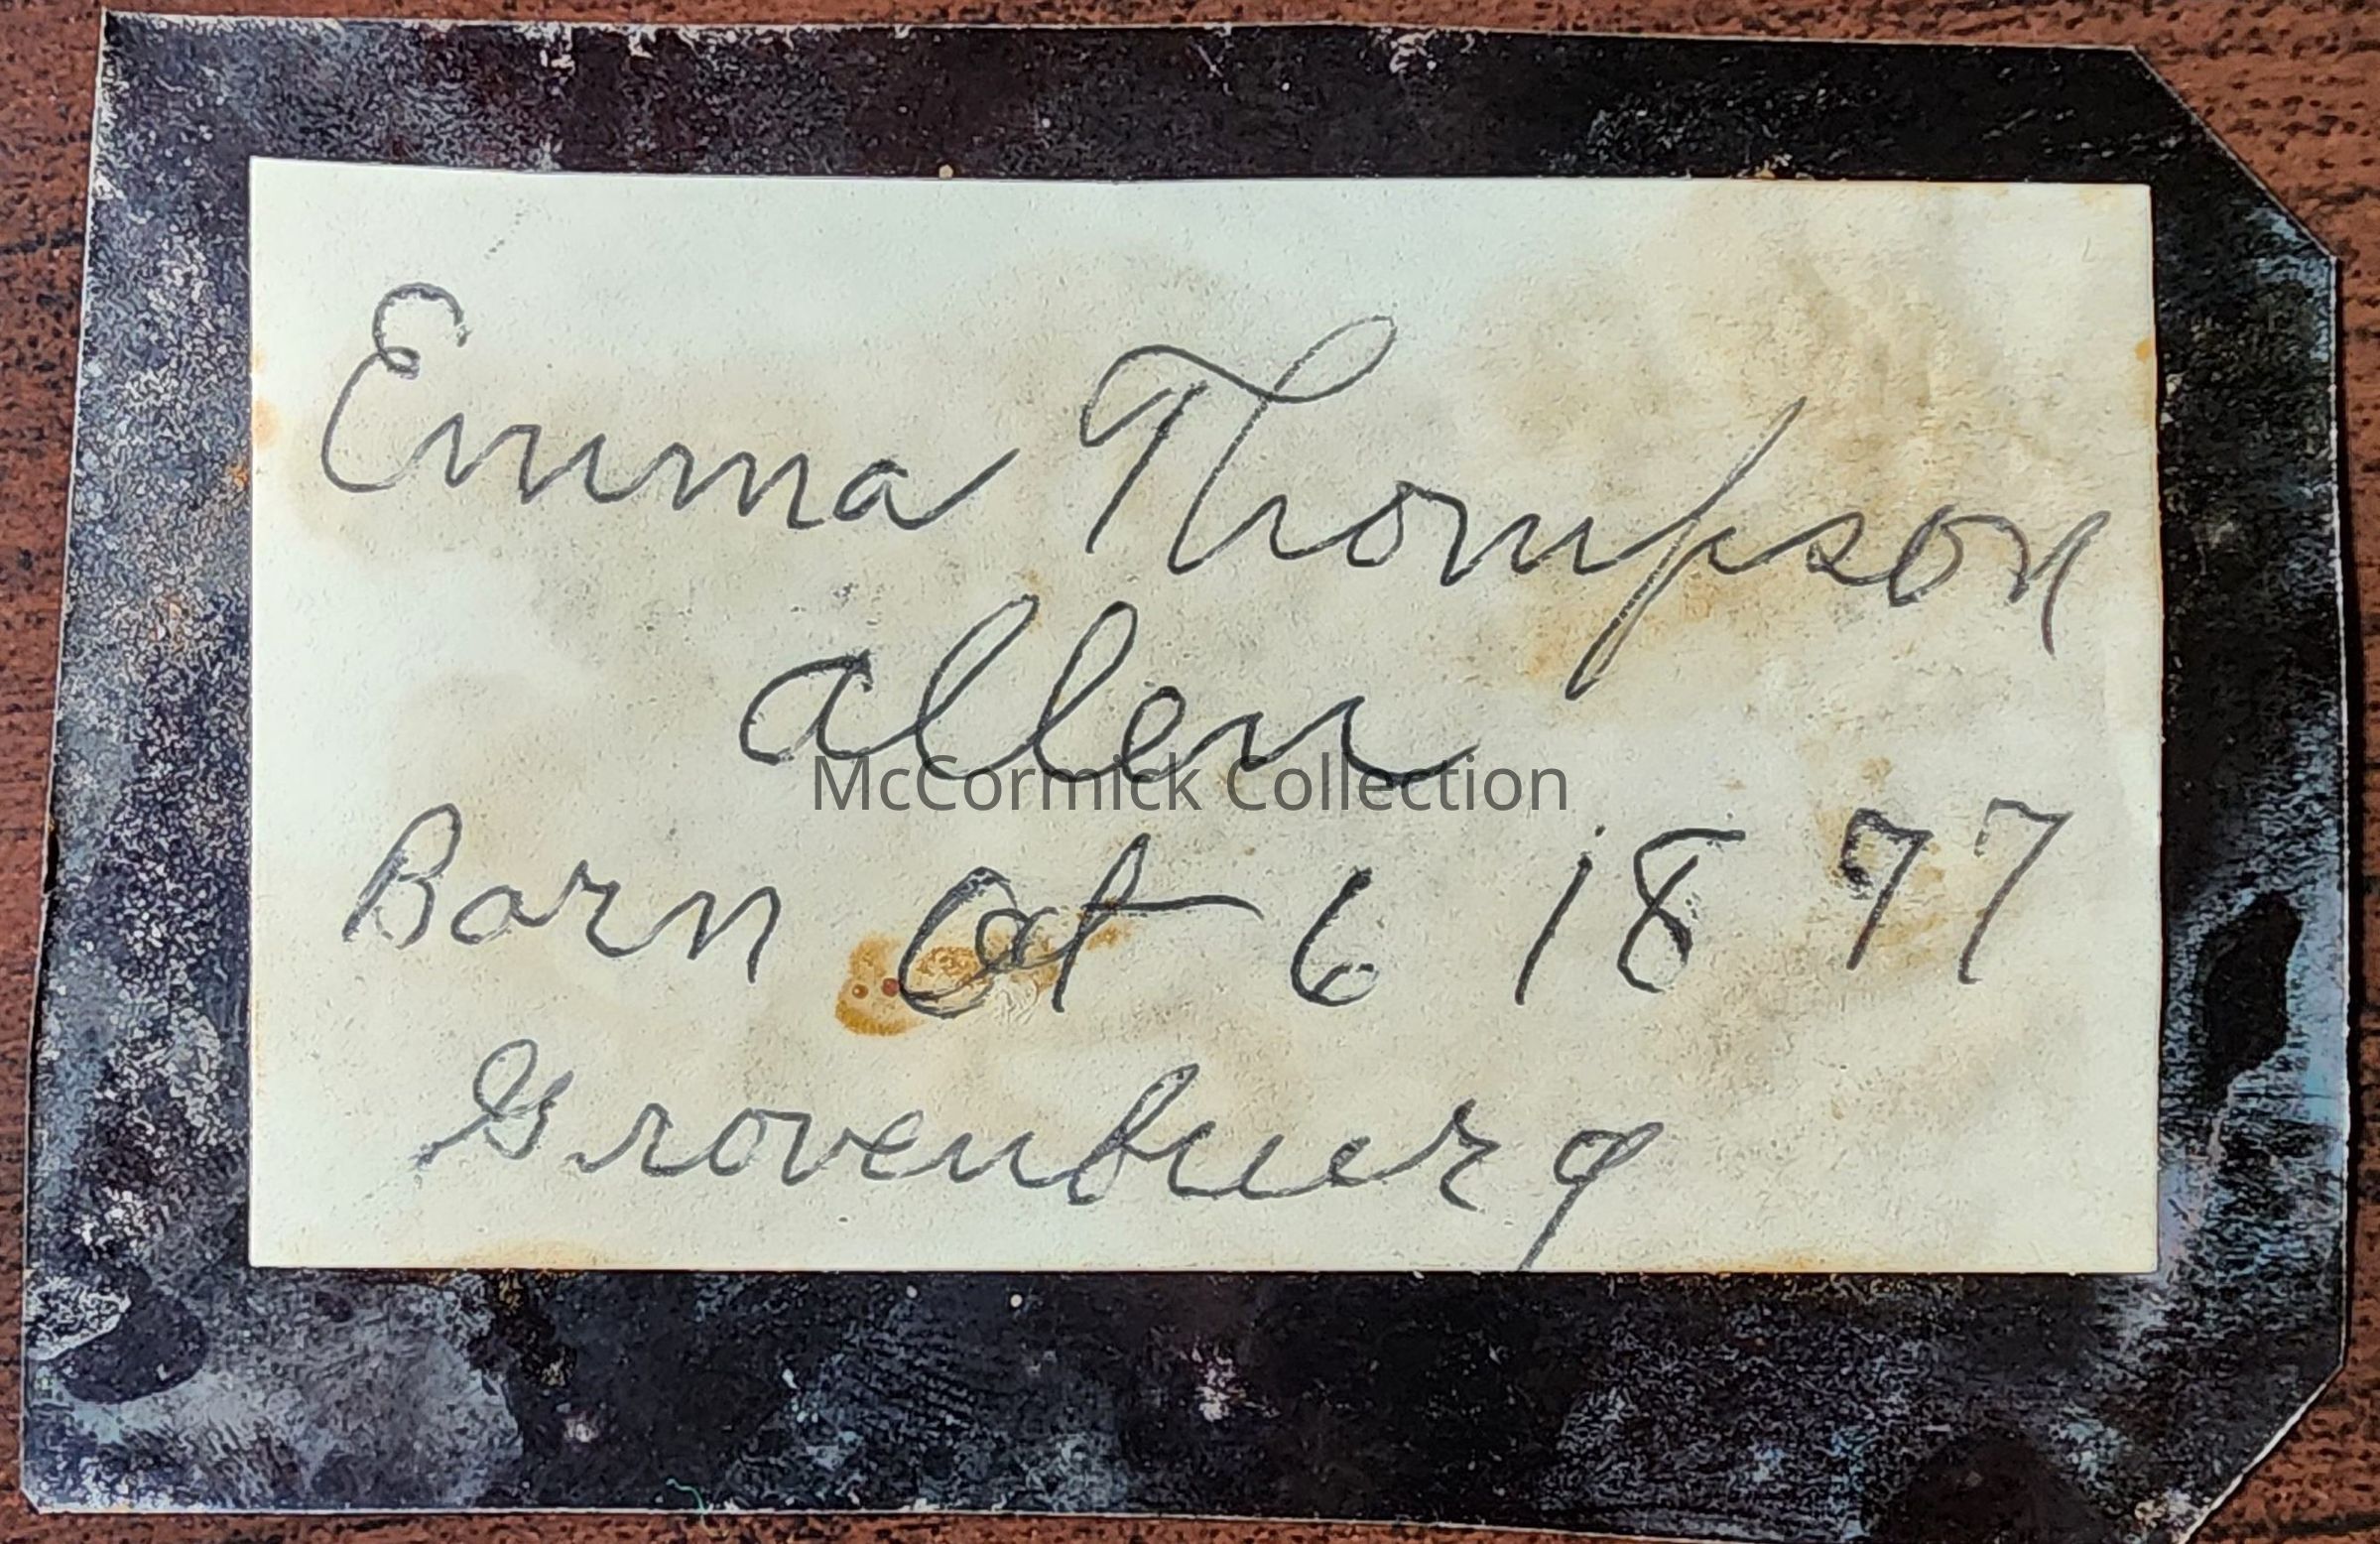 Emma Thompson
Allen
McCormick Collection
Born Oct 6 1877
Grovenburg